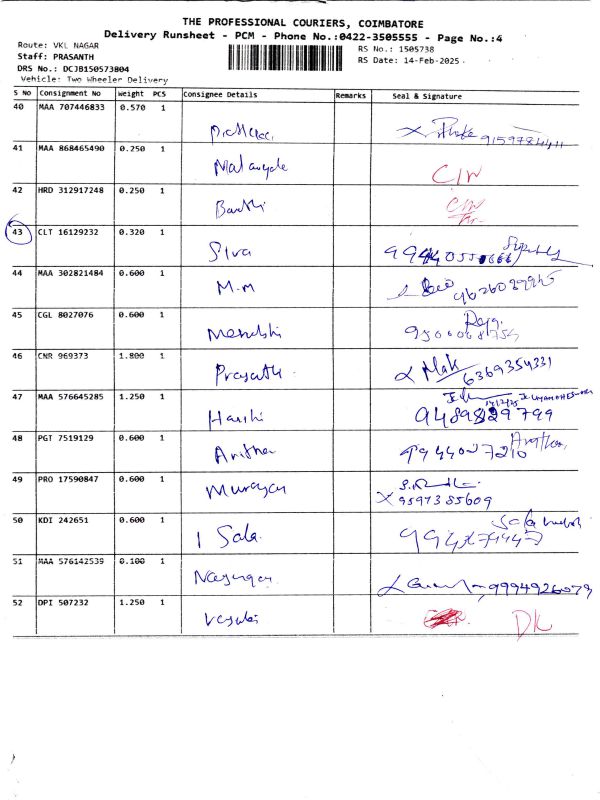 THE PROFESSIONAL COURIERS, COIMBATORE
Delivery Runsheet - PCM - Phone No.:0422-3505555 - Page No.:4
Route: VKL NAGAR
RS No.: 1505738
Staff: PRASANTH
RS Date: 14-Feb-2025
DRS No.: DCJB150573804
Vehicle: Two Wheeler Delivery
S No Consignment No Weight PCS Consignee Details Remarks Seal & Signature
40 MAA 707446833 0.570 1
9159784411
41 MAA 868465490 0.250 1
C/W
42 HRD 312917248 0.250 1
C/W
43 CLT 16129232 0.320 1
Siva
44 MAA 302821484 0.600 1
M.m
45 CGL 8027076 0.600 1
Raja
46 CNR 969373 1.800 1
Prasath Mak 6369354331
47 MAA 576645285 1.250 1
Harshi 9489829799
48 PGT 7519129 0.600 1
Anitha
49 PRO 17590847 0.600 1
Murugan X 9597385609
50 KDI 242651 0.600 1
Sala
51 MAA 576142539 0.100 1
9994926079
52 DPI 507232 1.250 1
DK